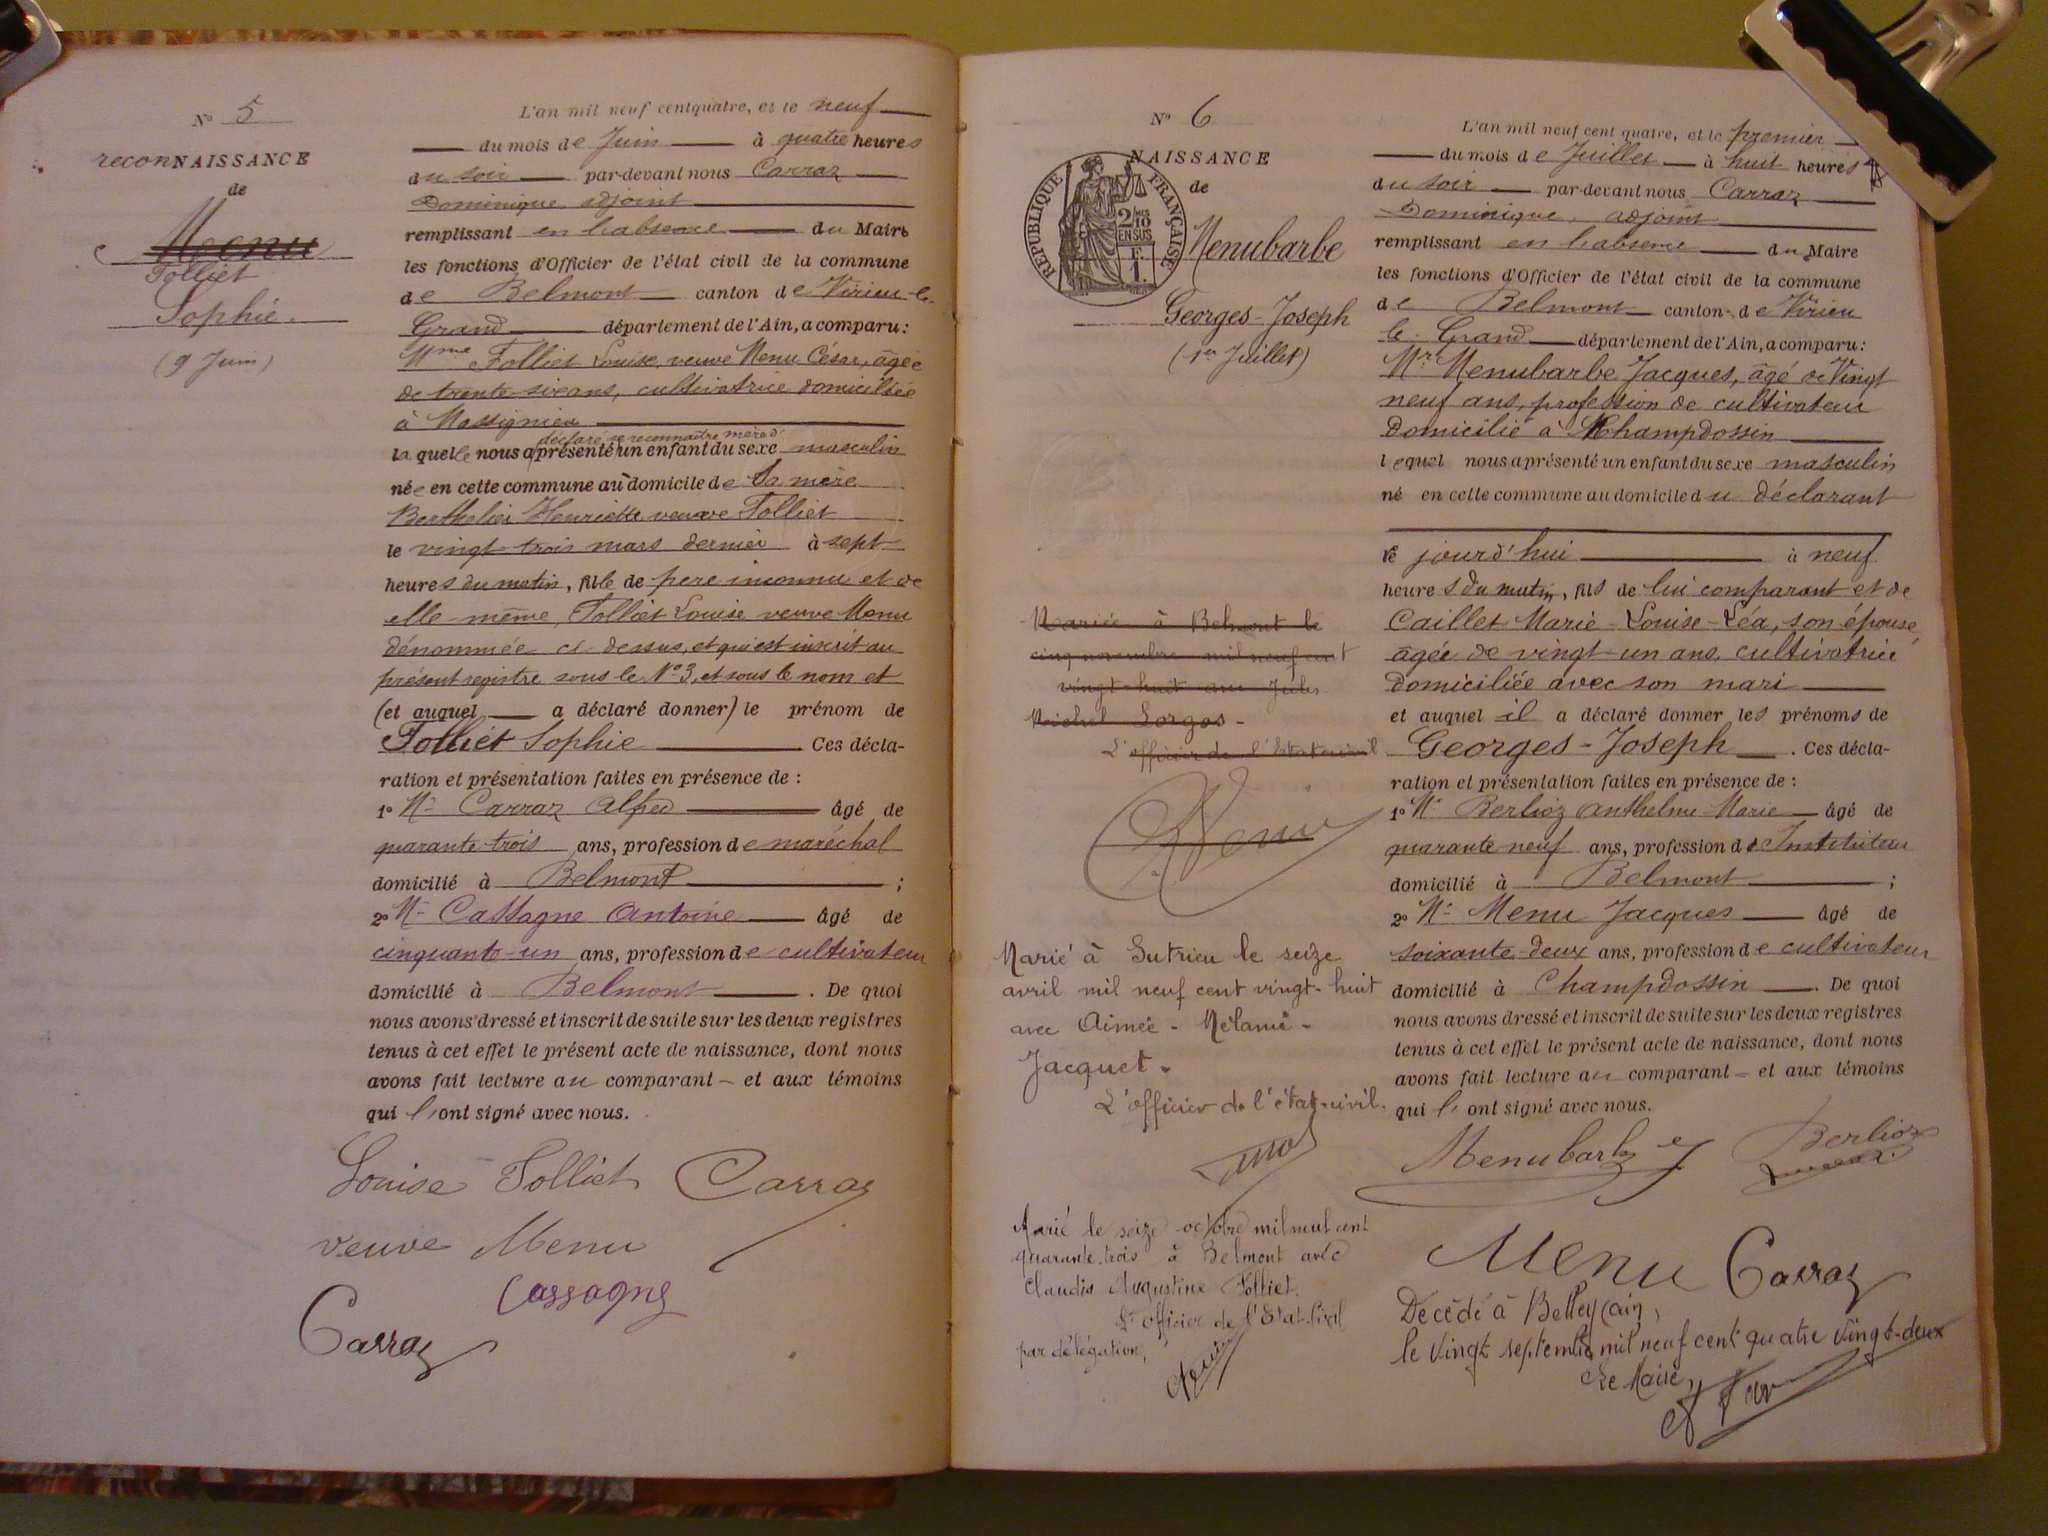 N° 5
reconNAISSANCE
de
Menu
Folliet
Sophie.
(9 Juin)
L'an mil neuf cent quatre, et le neuf
du mois de Juin à quatre heures
du soir par-devant nous Carraz
Dominique adjoint
remplissant en l'absence du Maire
les fonctions d'Officier de l'état civil de la commune
de Belmont canton de Virieu-le-
Grand département de l'Ain, a comparu:
Mme Folliet Louise, veuve Menu César, âgée
de trente-six ans, cultivatrice domiciliée
à Massignieu
déclare se reconnaître mère d'
laquelle nous a présenté un enfant du sexe masculin
née en cette commune au domicile de sa mère
Berthelier Henriette veuve Folliet
le vingt-trois mars dernier à sept
heures du matin, fille de père inconnu et de
elle-même, Folliet Louise veuve Menu
dénommée ci-dessus, et qui est inscrit au
présent registre sous le N° 3, et sous le nom et
(et auquel a déclaré donner) le prénom de
Folliet Sophie Ces décla-
ration et présentation faites en présence de :
1° Mr Carraz Alfred âgé de
quarante-trois ans, profession de maréchal
domicilié à Belmont ;
2° Mr Cassagne Antoine âgé de
cinquante-un ans, profession de cultivateur
domicilié à Belmont . De quoi
nous avons dressé et inscrit de suite sur les deux registres
tenus à cet effet le présent acte de naissance, dont nous
avons fait lecture au comparant et aux témoins
qui l'ont signé avec nous.
Louise Folliet Carraz
veuve Menu
Cassagne
Carraz
N° 6
NAISSANCE
de
RÉPUBLIQUE FRANÇAISE
2/10 EN SUS
1 F.
Menubarbe
Georges-Joseph
(1er Juillet)
Mariée à Belmont le
cinq novembre mil neuf cent
vingt-huit au Jules
Michel Sorgos -
L'officier de l'Etat civil
Marié à Sutrieu le seize
avril mil neuf cent vingt-huit
avec Aimée-Mélanie-
Jacquet.
L'officier de l'état-civil.
Marié le seize octobre mil neuf cent
quarante-trois à Belmont avec
Claudia Augustine Folliet.
L'officier de l'Etat-Civil
par délégation,
L'an mil neuf cent quatre, et le premier
du mois de Juillet à huit heures
du soir par-devant nous Carraz
Dominique, adjoint
remplissant en l'absence du Maire
les fonctions d'Officier de l'état civil de la commune
de Belmont canton de Virieu
le Grand département de l'Ain, a comparu:
Mr Menubarbe Jacques, âgé de Vingt
neuf ans, profession de cultivateur
domicilié à Champdossin
lequel nous a présenté un enfant du sexe masculin
né en cette commune au domicile du déclarant
ce jourd'hui à neuf
heures du matin, fils de lui comparant et de
Caillet Marie-Louise-Léa, son épouse,
âgée de vingt-un ans, cultivatrice
domiciliée avec son mari
et auquel il a déclaré donner les prénoms de
Georges-Joseph . Ces décla-
ration et présentation faites en présence de :
1° Mr Berlioz Anthelme-Marie âgé de
quarante neuf ans, profession d'Instituteur
domicilié à Belmont ;
2° Mr Menu Jacques âgé de
soixante-deux ans, profession de cultivateur
domicilié à Champdossin . De quoi
nous avons dressé et inscrit de suite sur les deux registres
tenus à cet effet le présent acte de naissance, dont nous
avons fait lecture au comparant et aux témoins
qui l'ont signé avec nous.
Menubarbe Berlioz
Menu Carraz
Décédé à Belley (ain),
le vingt septembre mil neuf cent quatre vingt-deux
Le Maire,